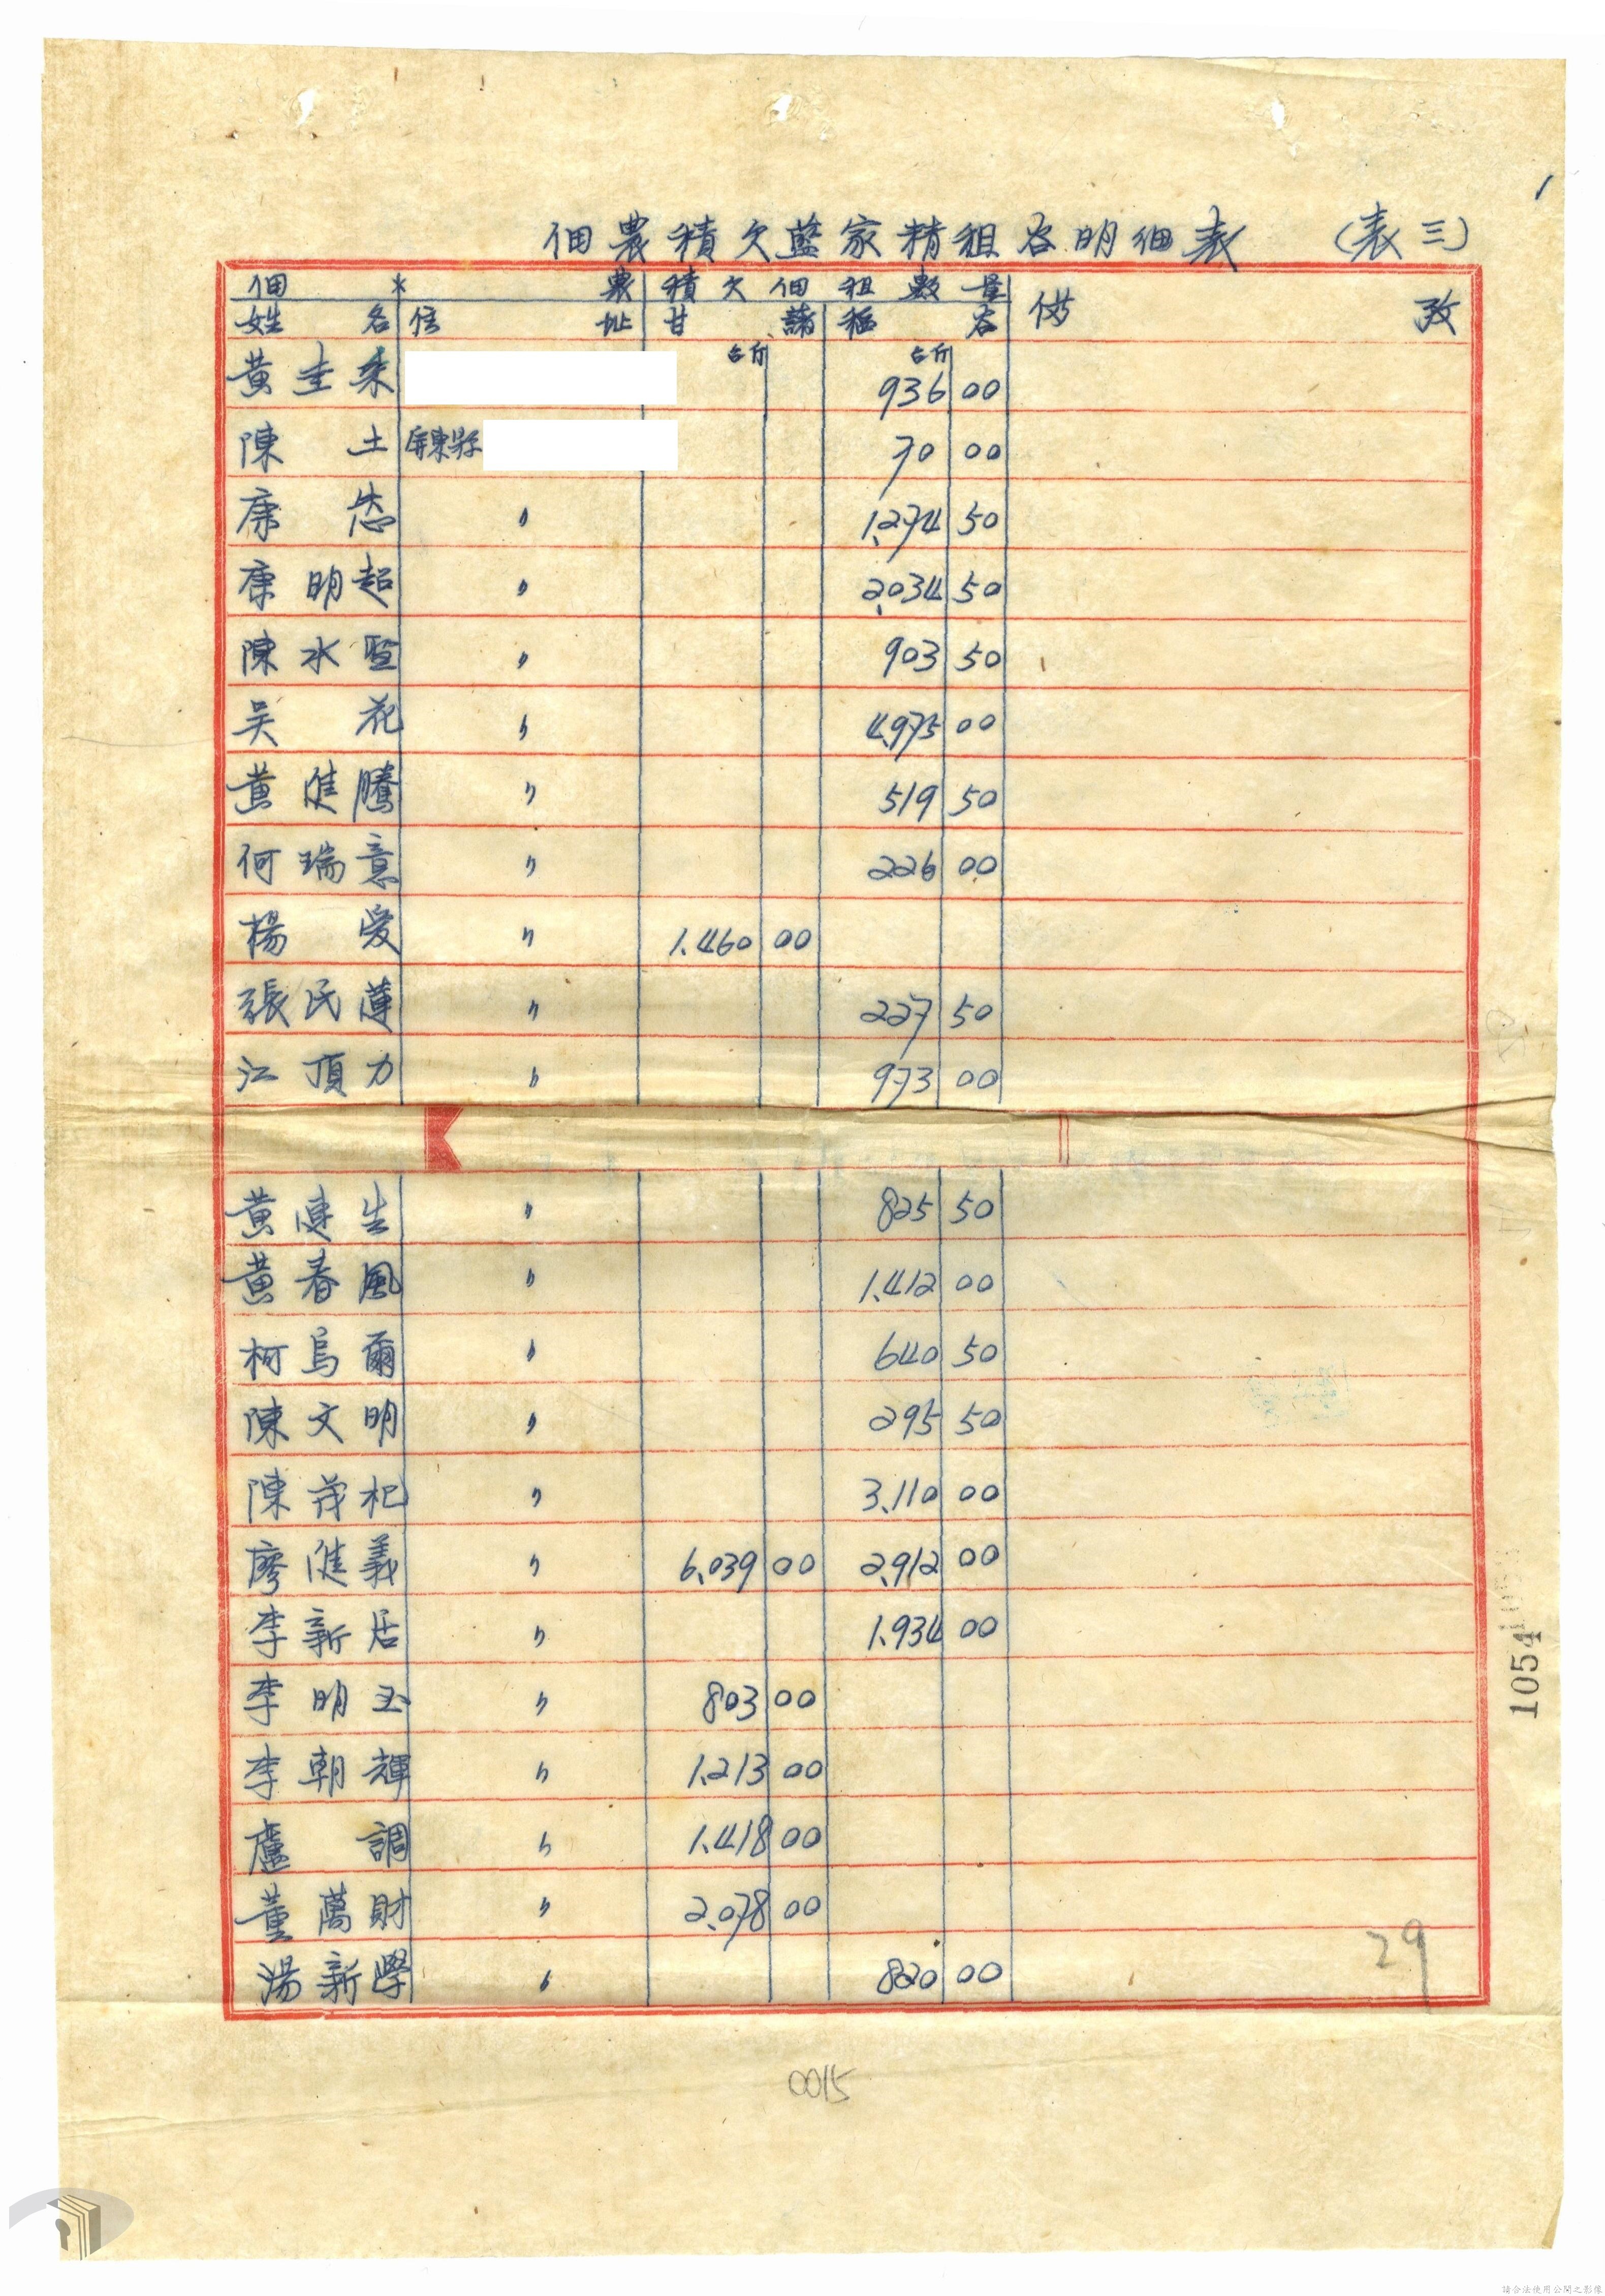 佃農積欠藍家精租谷明細表 (表三)
佃農 積欠佃租數量 備攷
姓名 住址 甘諸 稻谷
台斤 台斤
黃圭采 936 00
陳土 屏東縣 70 00
康 〃 1.274 50
康明超 〃 2.034 50
陳水 〃 903 50
吳花 〃 4.975 00
黃進騰 〃 519 50
何瑞意 〃 226 00
楊愛 〃 1.460 00
張民蓮 〃 227 50
江頂力 〃 973 00
黃連生 〃 825 50
黃春風 〃 1.412 00
柯烏爾 〃 640 50
陳文明 〃 295 50
陳茂杞 〃 3.110 00
廖進義 〃 6.039 00 2.912 00
李新居 〃 1.934 00
李明玉 〃 803 00
李朝輝 〃 1.213 00
盧調 〃 1.418 00
董萬財 〃 2.078 00
湯新學 〃 820 00
1054
29
0015
請合法使用公開之影像